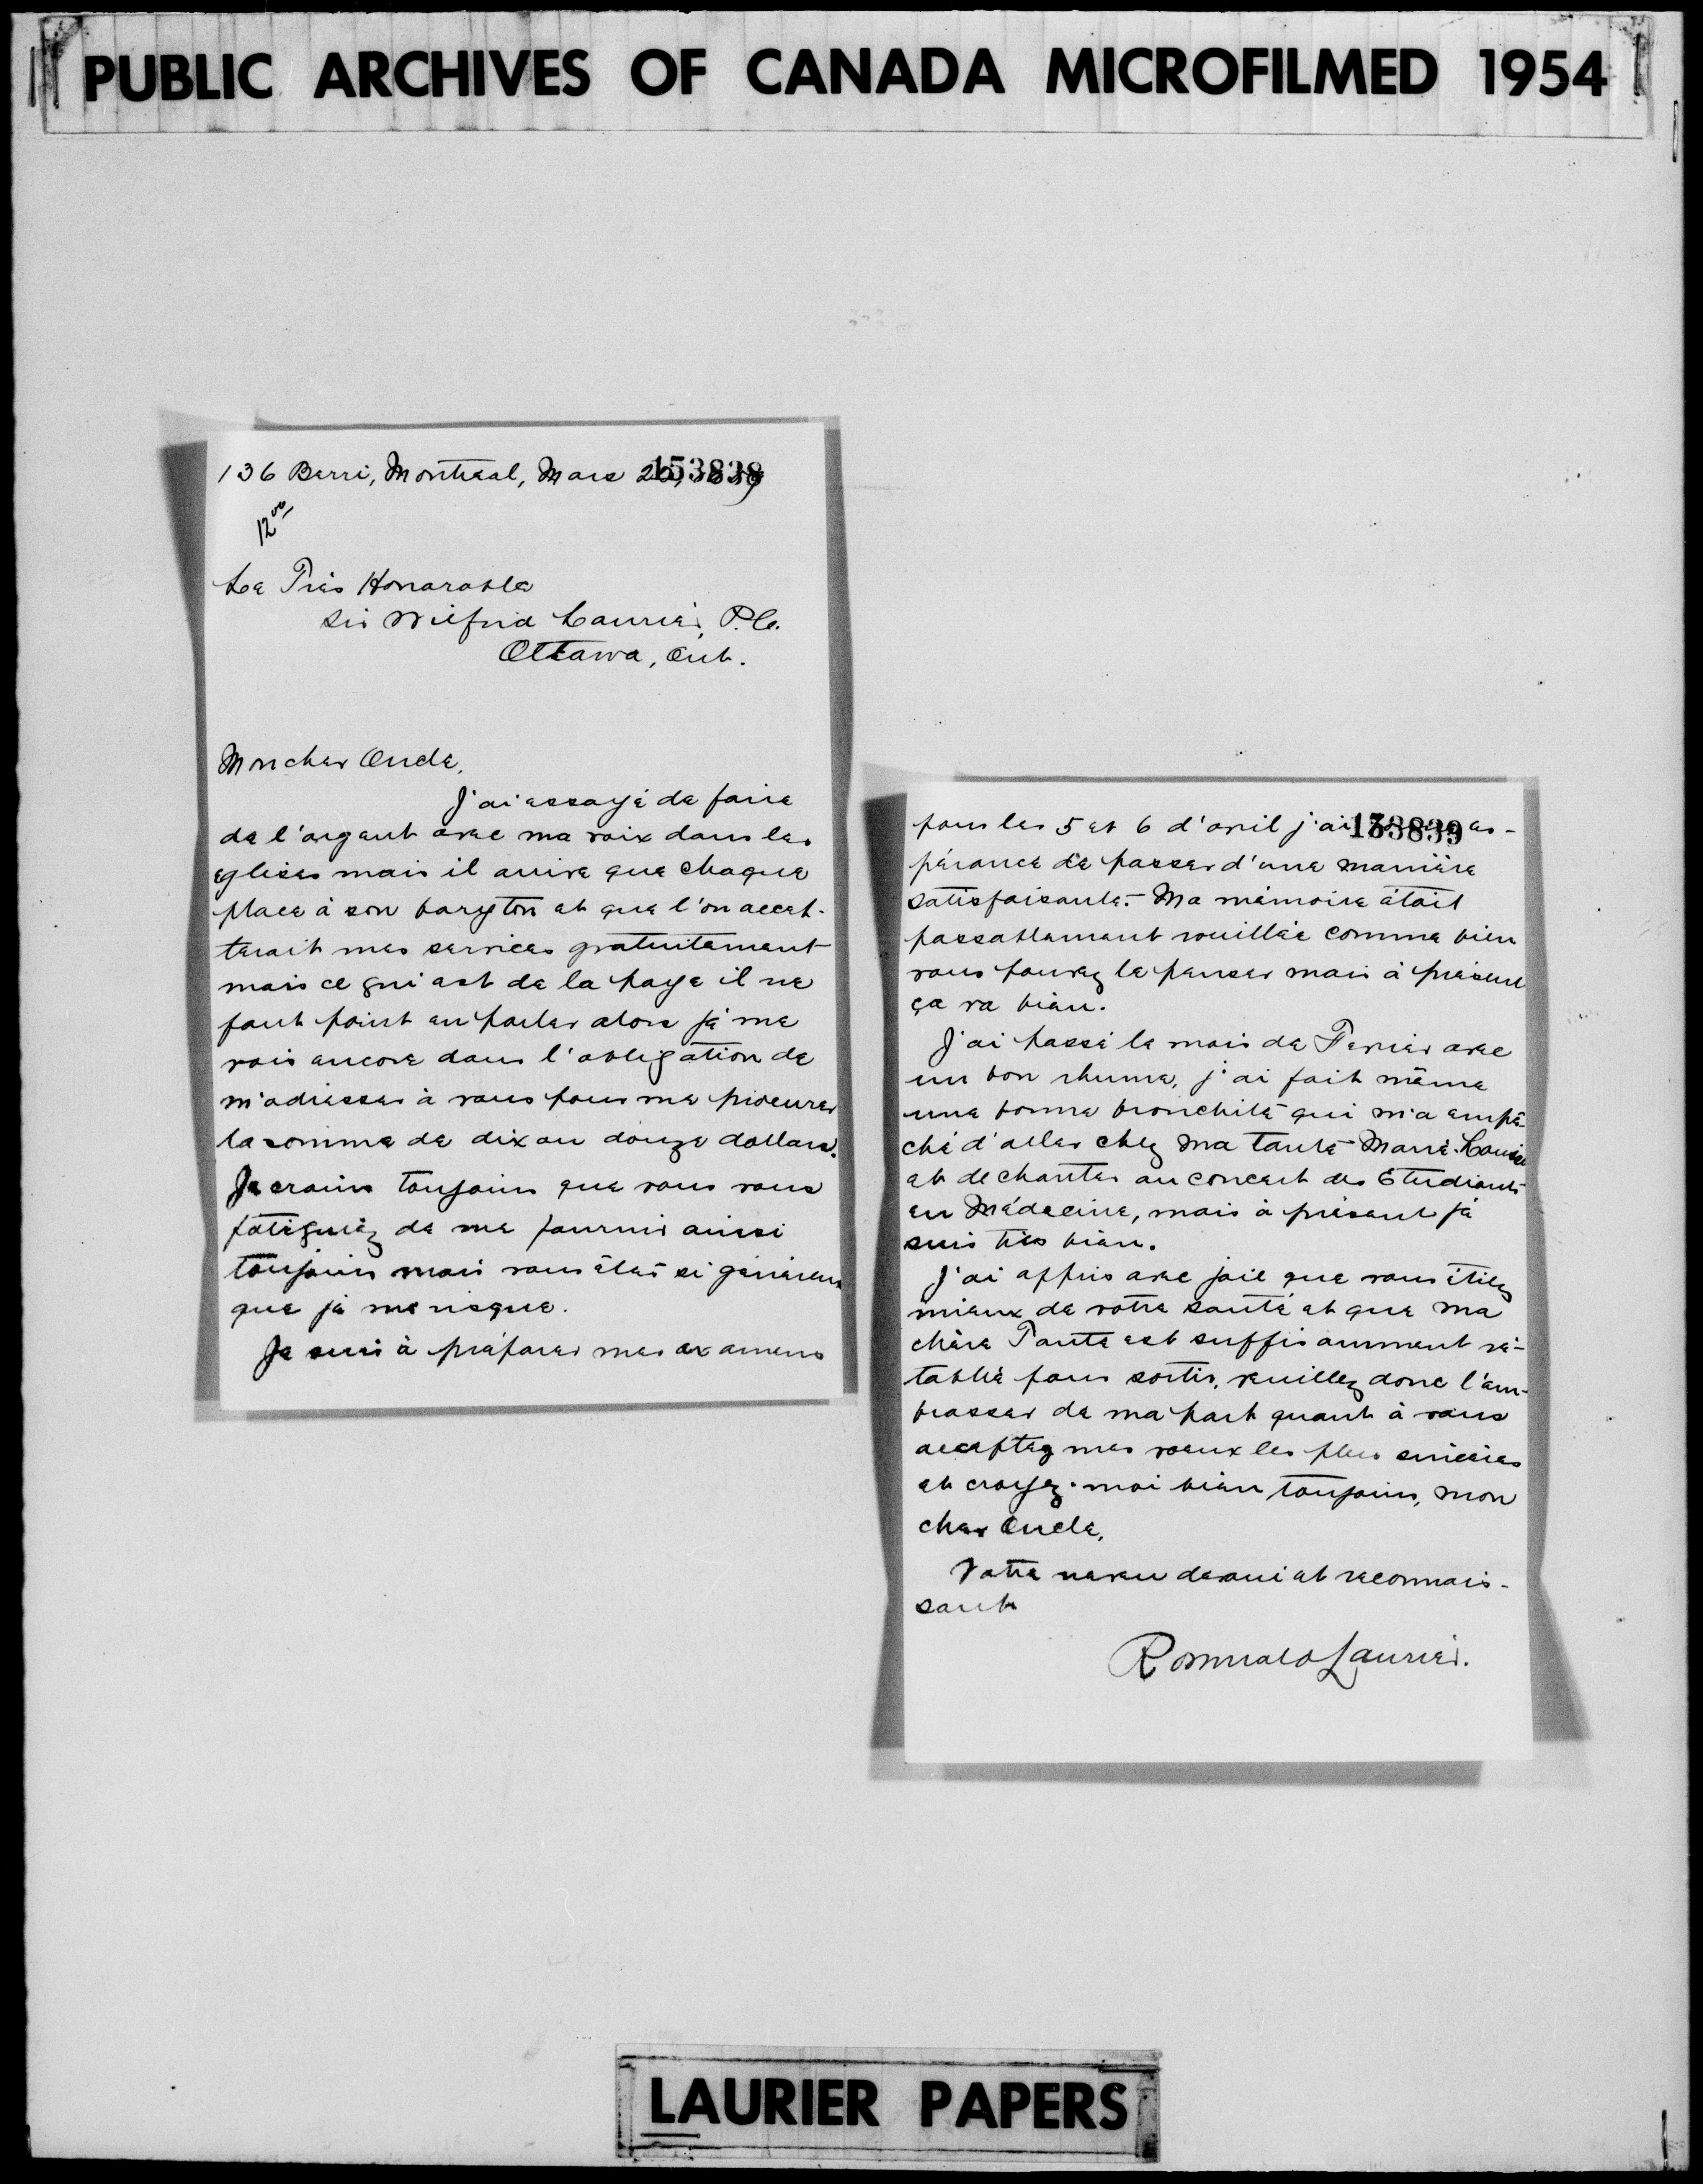 PUBLIC ARCHIVES OF CANADA MICROFILMED 1954
136 Berri, Montreal, Mars 153838
12 00
Le Très Honorable
Sir Wilfrid Laurier, P.C.
Ottawa, Ont.
Mon cher Oncle,
J'ai essayé de faire
de l'argent avec ma voix dans les
eglises mais il arrive que chaque
place à son baryton et que l'on accep-
terait mes services gratuitement
mais ce qui est de la paye il ne
faut point en parler alors je me
vois encore dans l'obligation de
m'adresser à vous pour me procurer
la somme de dix ou douze dollars.
Je crains toujours que vous vous
fatiguiez de me fournir ainsi
toujours mais vous êtes si généreux
que je me risque.
Je suis à préparer mes examens
pour les 5 et 6 d'avril j'ai 153839 es-
pérance de passer d'une manière
satisfaisante. Ma mémoire était
passablement rouillée comme bien
vous pouvez le penser mais à présent
ça va bien.
J'ai passé le mois de Fevrier avec
un bon rhume, j'ai fait même
une bonne bronchite qui m'a empê-
ché d'aller chez ma tante Marie-Louise
et de chanter au concert des Etudiants
en Médecine, mais à présent je
suis très bien.
J'ai appris avec joie que vous étiez
mieux de votre santé et que ma
chère Tante est suffisamment ré-
tablie pour sortir, veuillez donc l'em-
brasser de ma part quant à vous
acceptez mes voeux les plus sincères
et croyez-moi bien toujours, mon
cher Oncle,
Votre neveu devoué et reconnais-
sant
Romuald Laurier.
LAURIER PAPERS